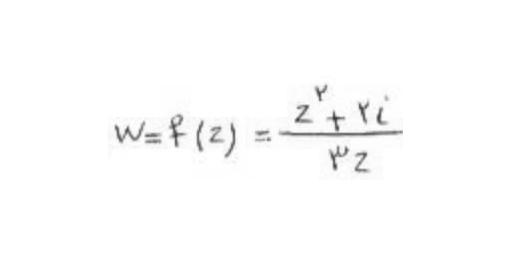 W = f(z) = (z^۲ + ۲i) / ۳z